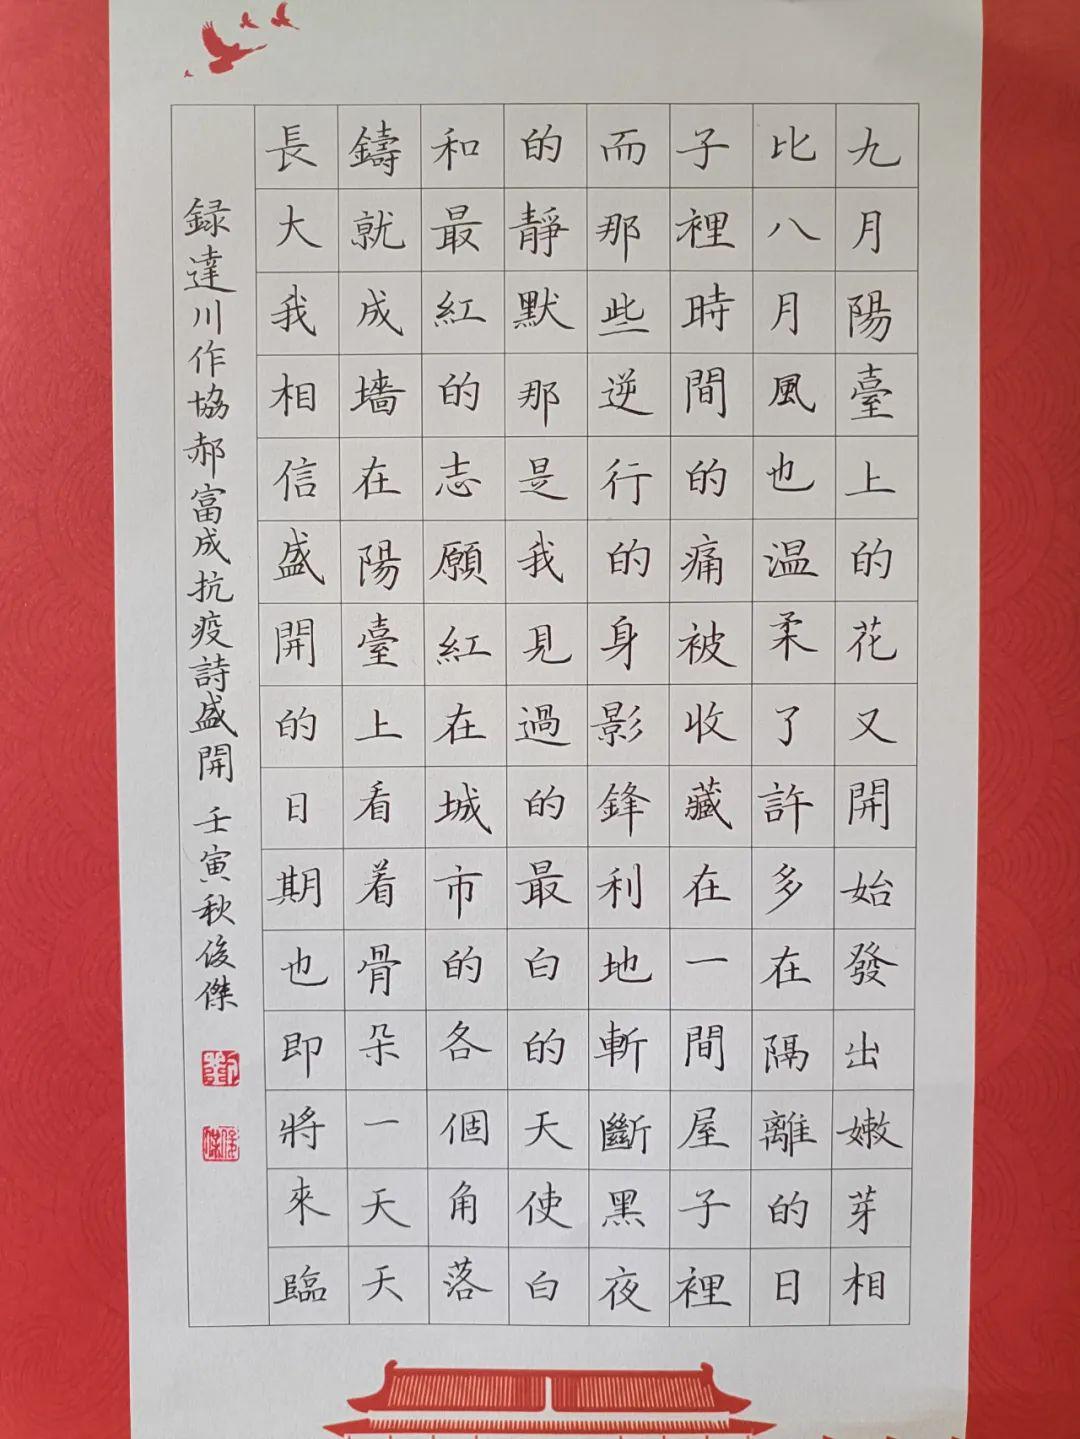 九月陽臺上的花又開始發出嫩芽相
比八月風也温柔了許多在隔離的日
子裡時間的痛被收藏在一間屋子裡
而那些逆行的身影鋒利地斬斷黑夜
的靜默那是我見過的最白的天使白
和最紅的志願紅在城市的各個角落
鑄就成墻在陽臺上看着骨朵一天天
長大我相信盛開的日期也即將來臨
録達川作協郝富成抗疫詩盛開 壬寅秋俊傑